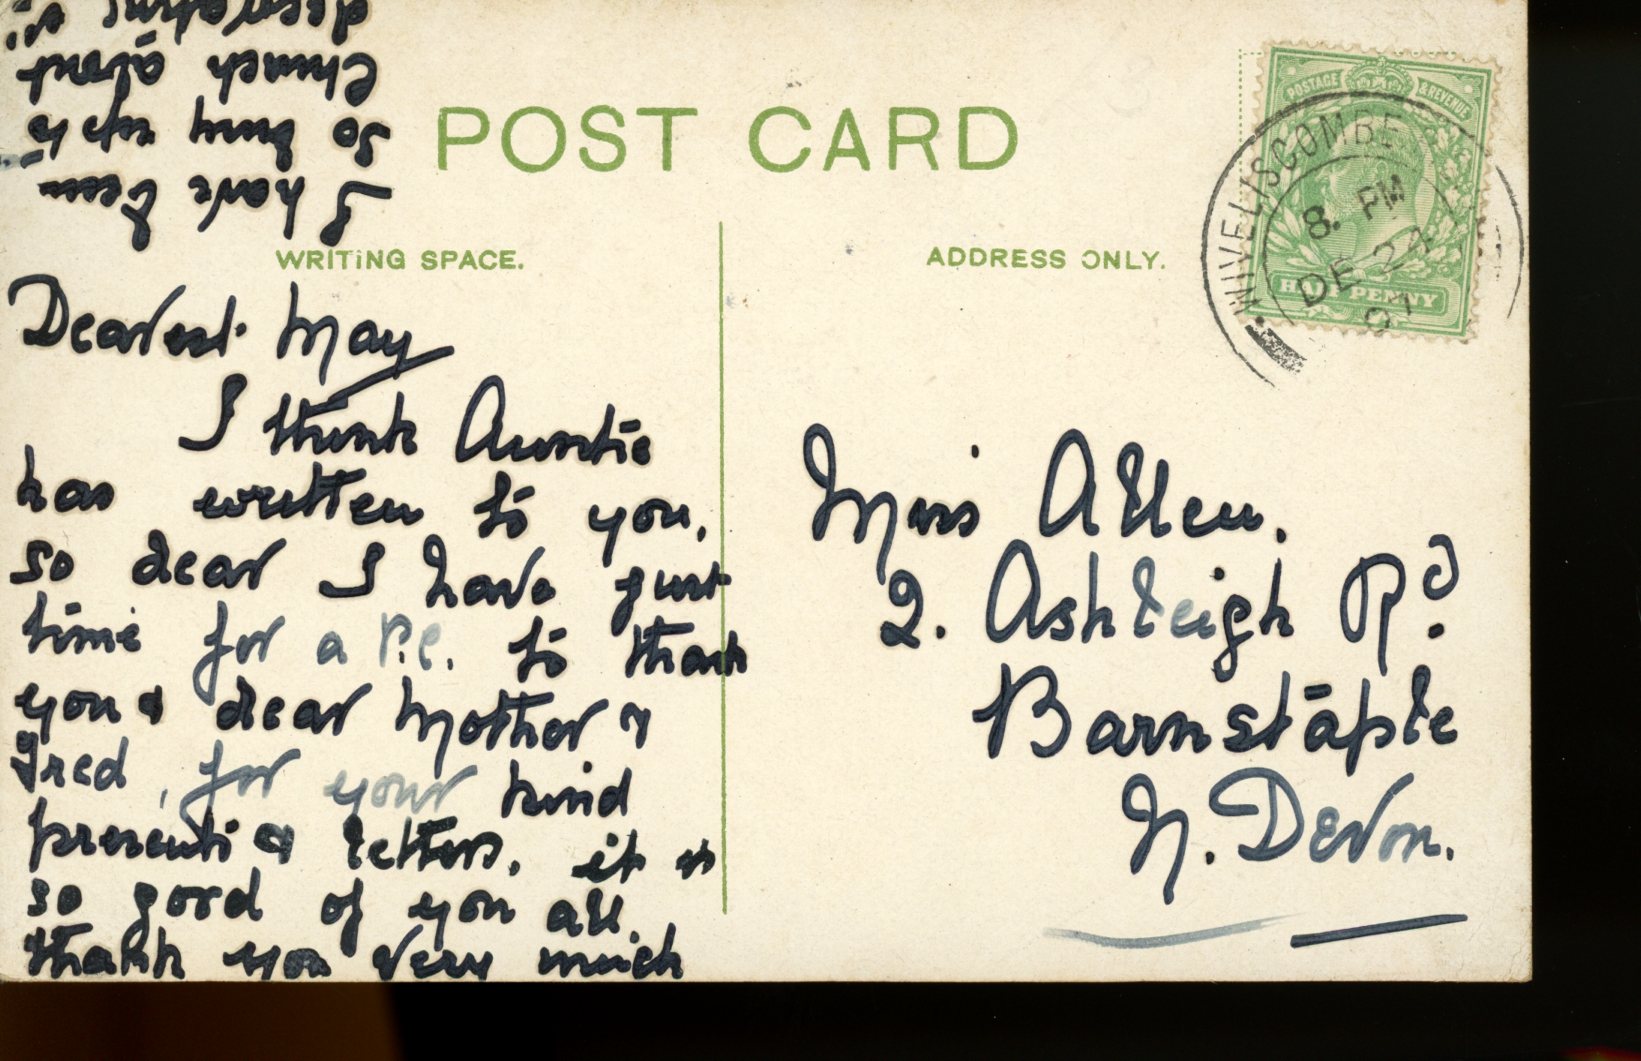 POST CARD
WRITING SPACE.
ADDRESS ONLY.
POSTAGE & REVENUE
HALF PENNY
WIVELISCOMBE
8. PM
DE 24
07
Dearest May
I think Auntie
has written to you,
so dear I have just
time for a P.C. to thank
you & dear Mother &
Fred, for your kind
presents & letters. it is
so good of you all.
thank you very much
I have been
so busy up to
Church about
decorations
Miss Allen.
2. Ashleigh Rd.
Barnstaple
N. Devon.